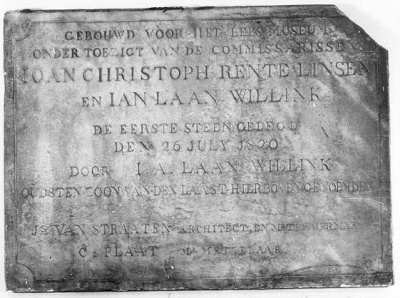 GEBOUWD VOOR HET LEES MUSEUM
ONDER TOEZIGT VAN DE COMMISSARISSEN
IOAN CHRISTOPH RENTE LINSEN
EN IAN LAAN WILLINK
DE EERSTE STEEN GELEGD
DEN 26 JULY 1820
DOOR I. A. LAAN WILLINK
OUDSTEN ZOON VAN DEN LAATST HIERBOVEN GENOEMDEN
Js VAN STRAATEN ARCHITECT, EN
C: PLAAT METZELAAR